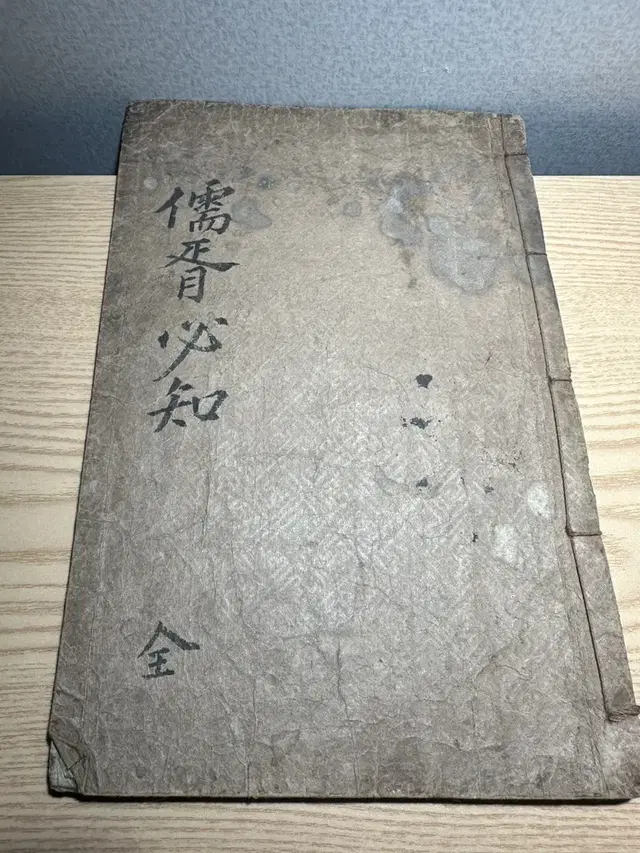 儒胥必知
全